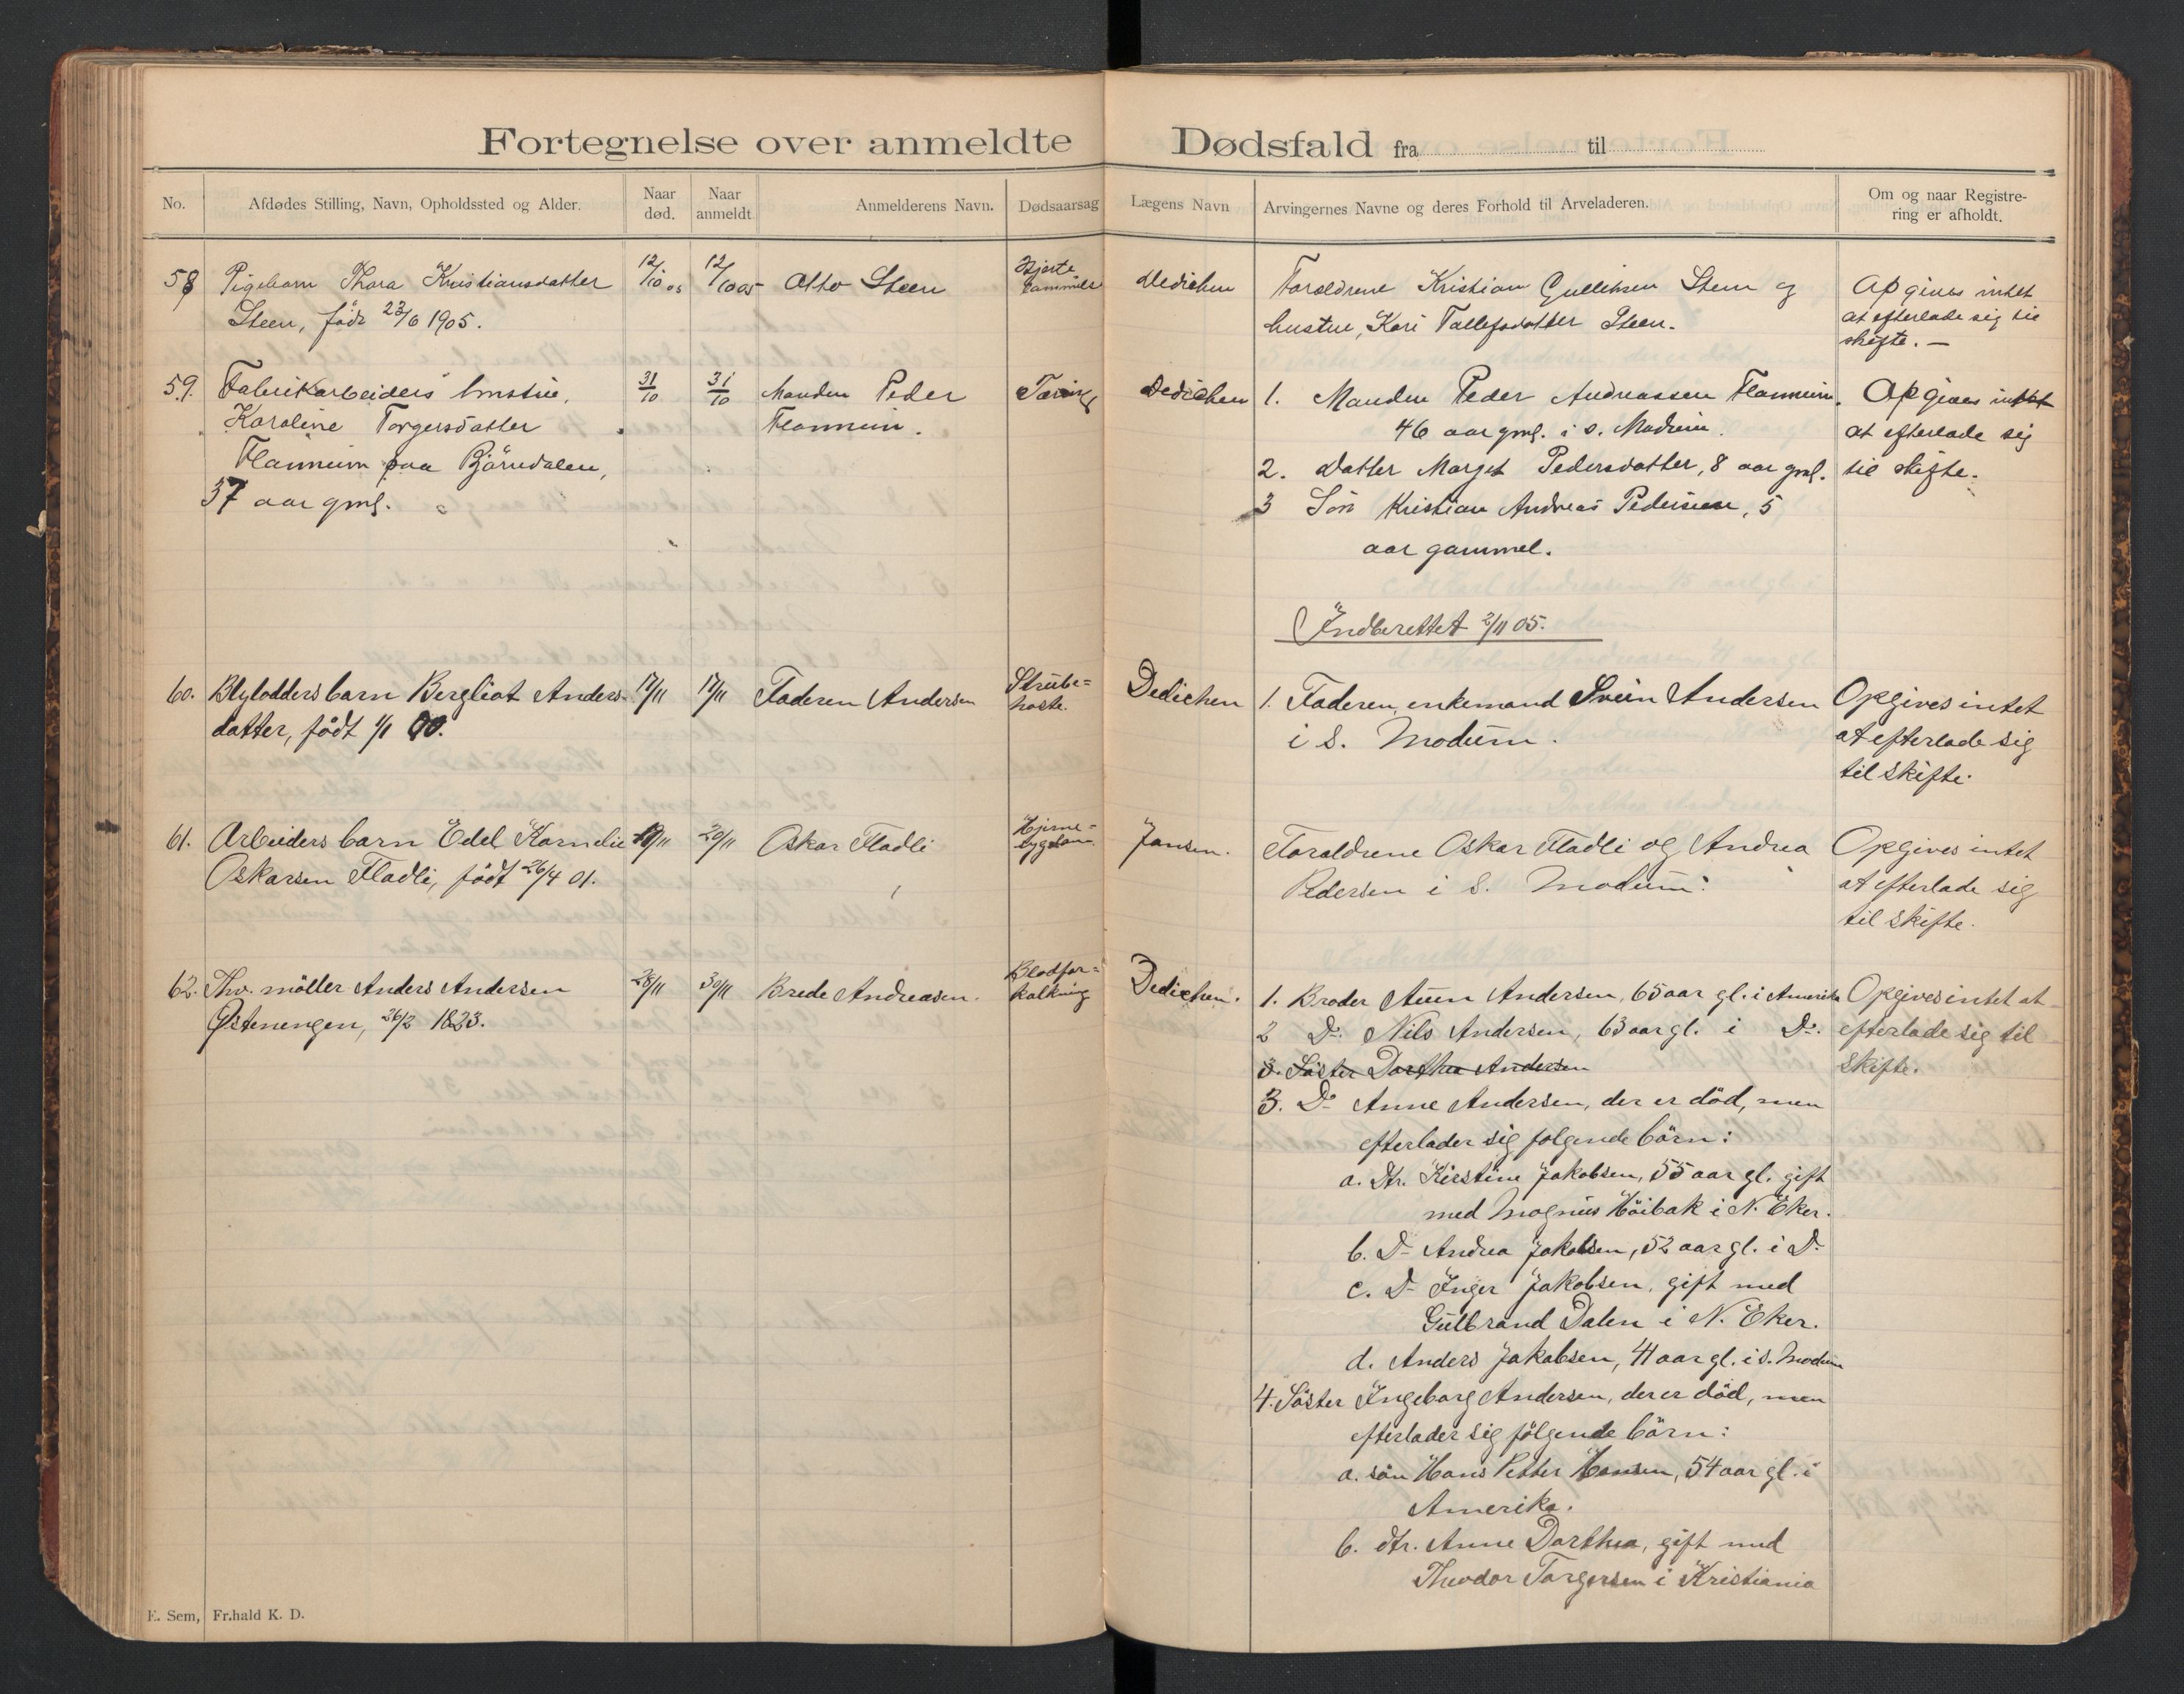 Fortegnelse over anmeldte Dødsfald fra til
No.
Afdødes Stilling, Navn, Opholdssted og Alder.
Naar
død.
Naar
anmeldt.
Anmelderens Navn.
Dødsaarsag
Lægens Navn
Arvingernes Navne og deres Forhold til Arveladeren.
Om og naar Registre-
ring er afholdt.
58 Pigebarn Thora Kristiansdatter
Steen, født 23/6 1905.
12/10 05
12/10 05
Otto Steen
Hjerte
Dedichen
Forældrene Kristian Gulliksen Steen og
hustru, Kari Tollefsdatter Steen.
Opgives intet
at efterlade sig til
skifte. —
59. Fabrikarbeiders hustru,
Karoline Torgersdatter
Flannum paa Bjørndalen,
37 aar gml.
31/10
31/10
Manden Peder
Flannum.
Tæring
Dedichen
1. Manden Peder Andreassen Flannum,
46 aar gml. i s. Modum.
2. Datter Marget Pedersdatter, 8 aar gml.
3 Søn Kristian Andreas Pedersen, 5
aar gammel.
Opgives intet
at efterlade sig
til skifte.
Indberettet 2/11 05.
60. Blylodders barn Bergliot Anders-
datter, født 1/1 00.
17/11
17/11
Faderen Andersen
Strube=
hoste.
Dedichen
1. Faderen, enkemand Svein Andersen
i S. Modum.
Opgives intet
at efterlade sig
til skifte.
61. Arbeiders barn Edel Kornelie
Oskarsen Fladli, født 26/4 01.
19/11
20/11
Oskar Fladli
Hjerne=
sygdom
Jansen.
Forældrene Oskar Fladli og Andrea
Pedersen i S. Modum.
Opgives intet
at efterlade sig
til skifte.
62. Thv. møller Anders Andersen
Østenengen, 26/2 1823.
28/11
30/11
Brede Andreasen.
Blodfor=
kalkning
Dedichen.
1. Broder Auen Andersen, 65 aar gl. i Amerika
2 Do. Nils Andersen, 63 aar gl. i Do.
3. Søster Dorthea Andersen
3. Do Anne Andersen, der er død, men
efterlader sig følgende børn:
a. Dtr. Kirstine Jakobsen, 55 aar gl. gift
med Magnus Høibak i N. Eker.
b. Do Andrea Jakobsen, 52 aar gl. i Do
c. Do Inger Jakobsen, gift med
Gulbrand Dalen i N. Eker.
d. Anders Jakobsen, 41 aar gl. i s. Modum
4. Søster Ingeborg Andersen, der er død, men
efterlader sig følgende børn:
a. søn Hans Petter Hansen, 54 aar gl. i
Amerika.
b. dtr. Anne Dorthea, gift med
Theodor Torgersen i Kristiania
Opgives intet at
efterlade sig til
skifte.
E. Sem, Fr.hald K. D.